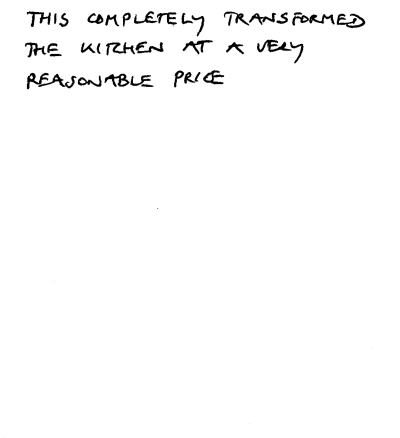 THIS COMPLETELY TRANSFORMED
THE KITCHEN AT A VERY
REASONABLE PRICE